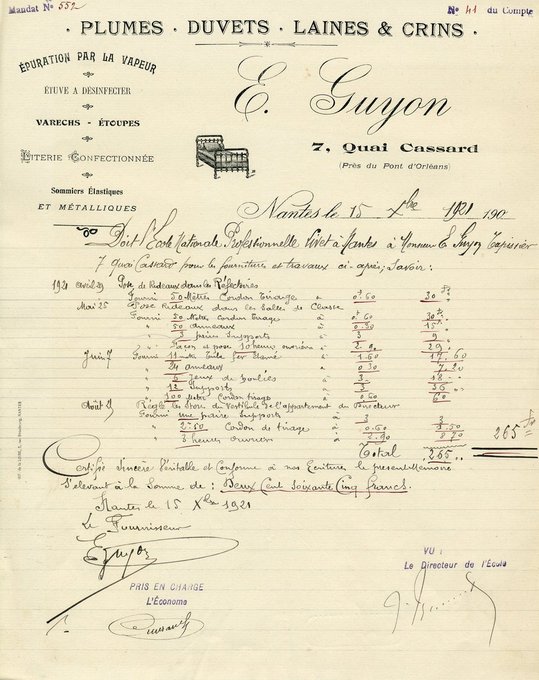 Mandat No 552
No 41 du Compte
· PLUMES · DUVETS · LAINES & CRINS ·
ÉPURATION PAR LA VAPEUR
ÉTUVE A DÉSINFECTER
VARECHS - ÉTOUPES
LITERIE CONFECTIONNÉE
Sommiers Élastiques
ET MÉTALLIQUES
E. Guyon
7, Quai Cassard
(Près du Pont d'Orléans)
Nantes le 15 Xbre 1921 190
Doit l'Ecole Nationale Professionnelle Livet à Nantes à Monsieur E Guyon Tapissier
7 quai Cassard pour les fournitures et travaux ci-après, Savoir :
1921 Avril 29 Pose de Rideaux dans les Réfectoires
Fourni 50 Mètres Cordon tirage à 0.60 30
Mai 25 Pose Rideaux dans les Salles de Classe
Fourni 50 Mètres Cordon tirage à 0.60 30
" 50 anneaux à 0.30 15
" 3 paires Supports à 3 9
" Façon et pose 10 heures ouvriers à 2.90 29
Juin 7 Fourni à 1.60 17.60
" 24 anneaux à 0.30 7.20
" 6 jeux de poulies à 3 18
" 12 Supports à 3 36
" 100 Mètres Cordon tirage à 0.60 60
Août Réglé le Store du Vestibule de l'appartement du Directeur
Fourni une paire Supports à 3
" 2.50 Cordon de tirage à 0.60
" 3 heures ouvriers à 2.90 8.70
Total 265 265
Certifié Sincère Véritable et Conforme à nos Ecritures le présent Mémoire
S'elevant à la Somme de : Deux Cent Soixante Cinq francs.
Nantes le 15 Xbre 1921
Le Fournisseur
EGuyon
PRIS EN CHARGE
L'Économe
VU :
Le Directeur de l'École